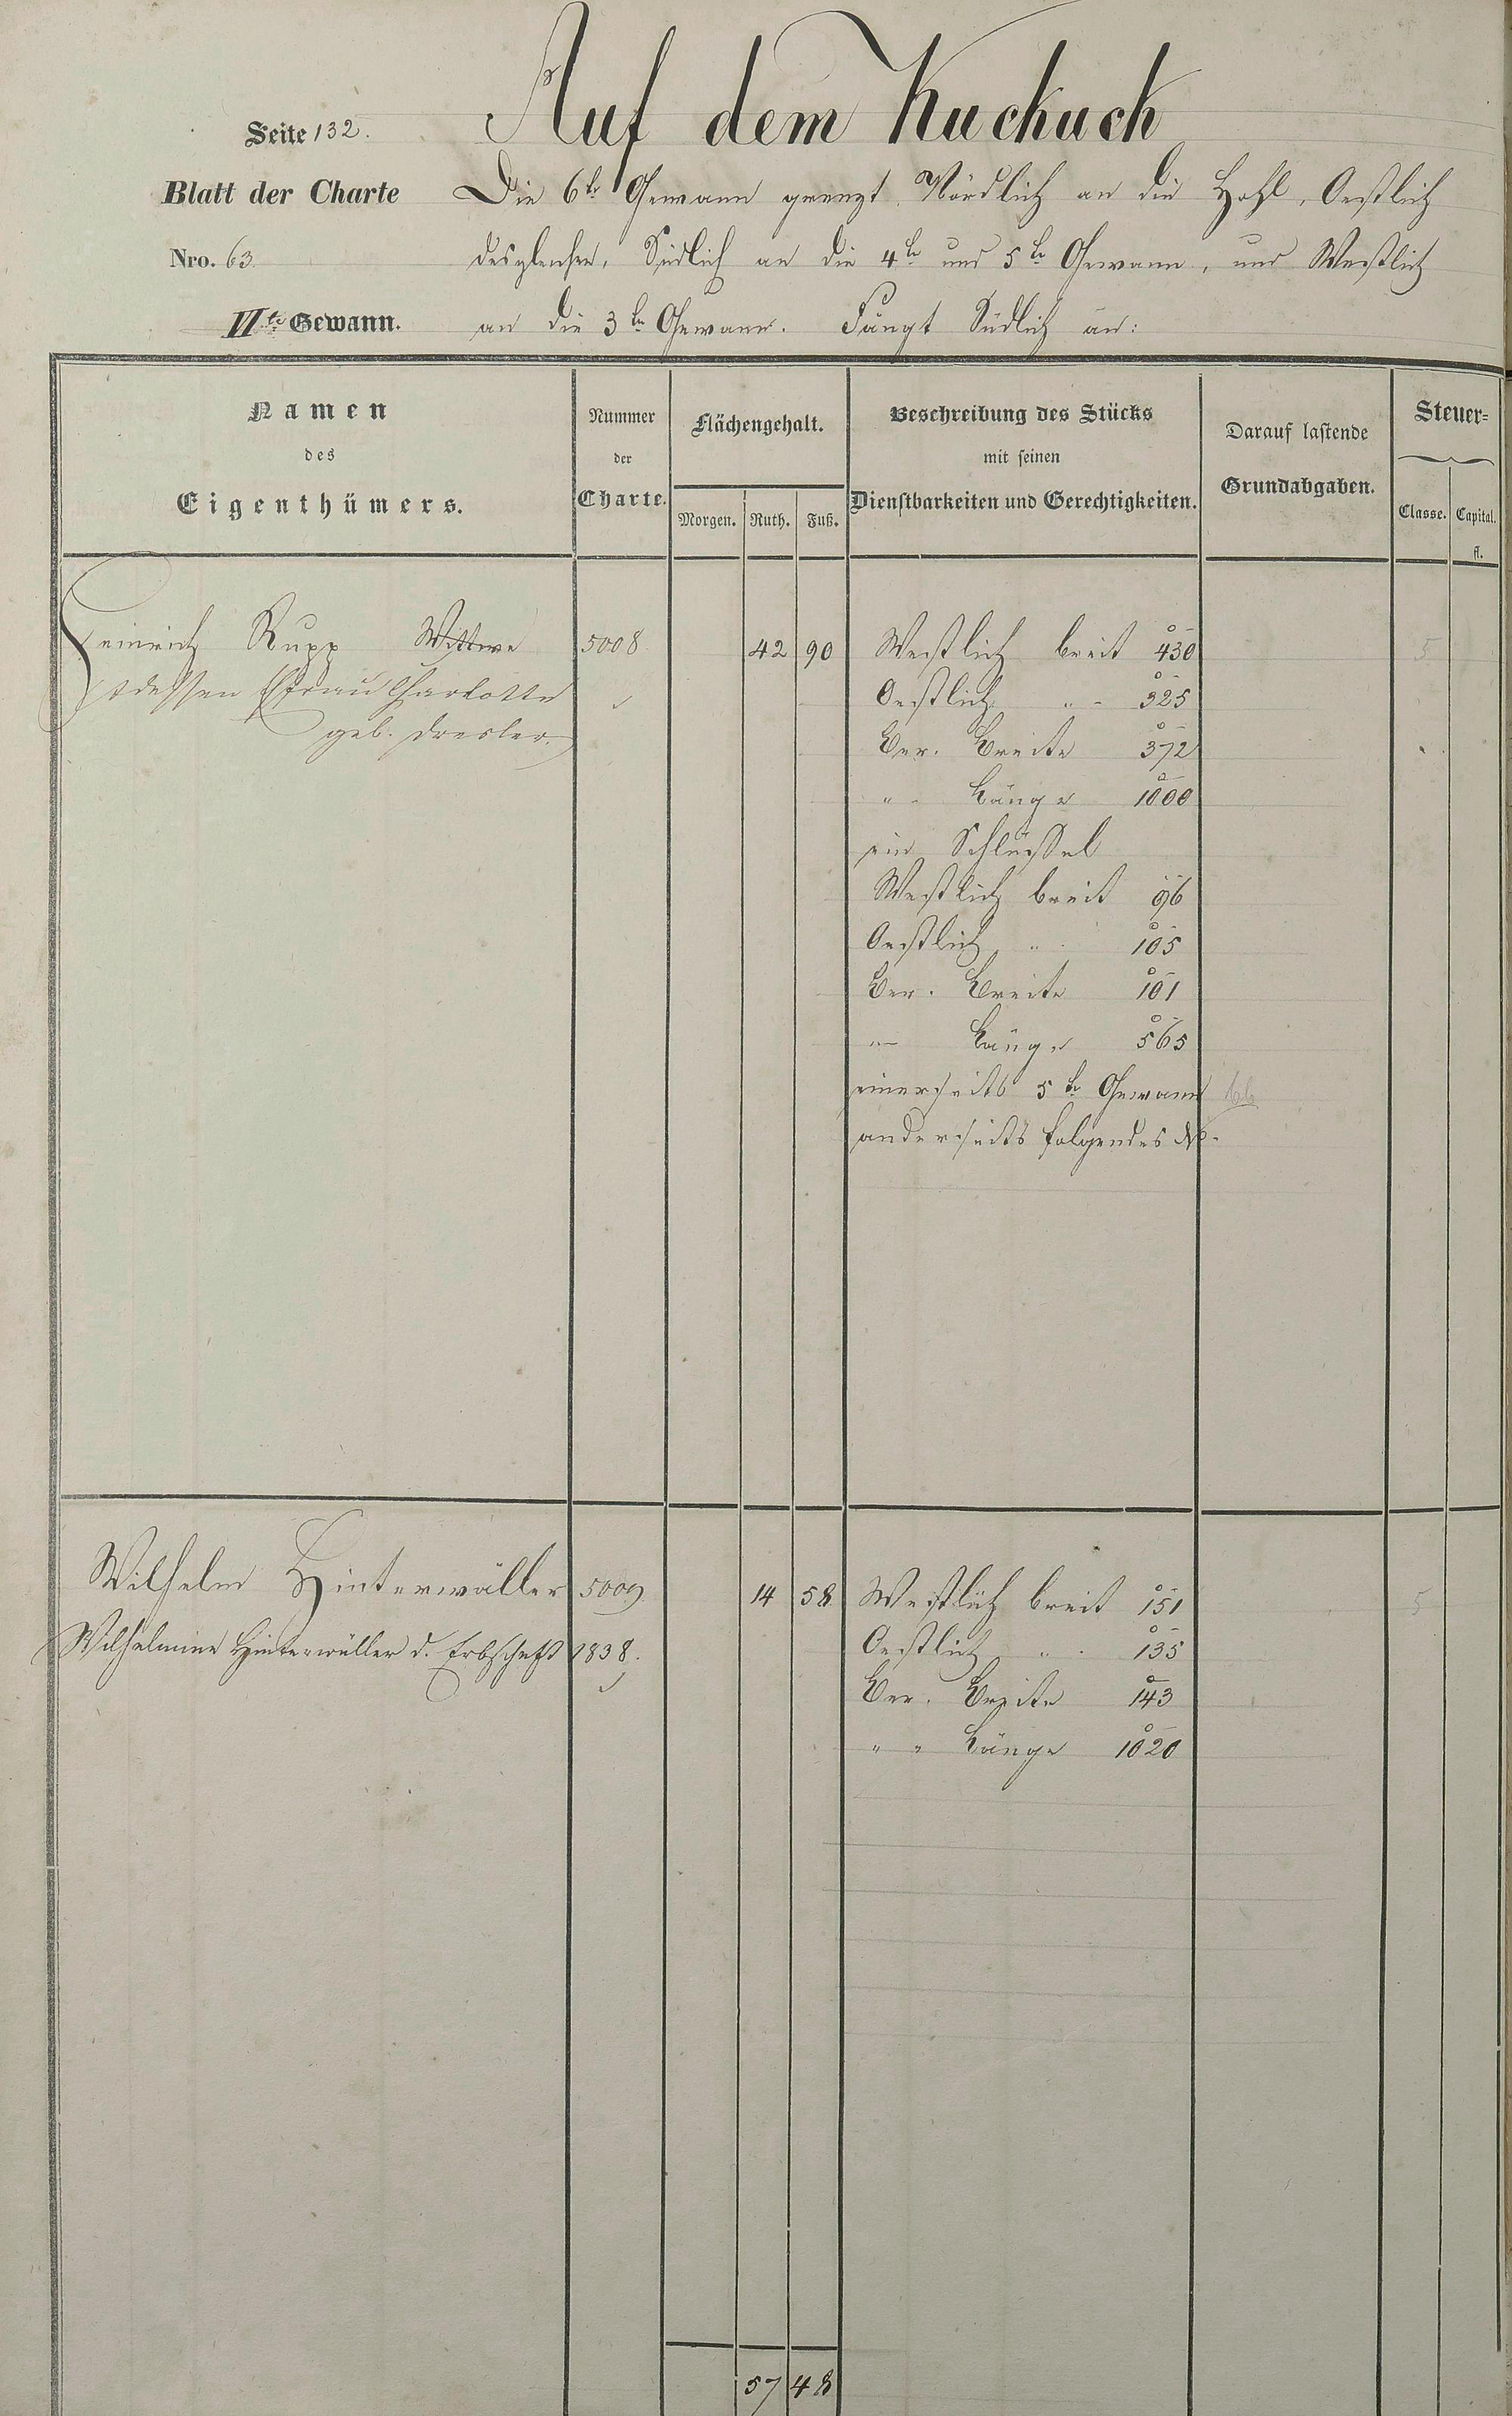 Auf dem Kuckuck
Seite 132.
Blatt der Charte
Nro. 63.
VIte Gewann.
Die 6te Gewann grenzt Nördlich an die Hohl, Oestlich
desgleichen, Südlich an die 4te und 5te Gewann, und Westlich
an die 3te Gewann. Fängt Südlich an:
Namen
des
Eigenthümers.
Nummer
der
Charte.
Flächengehalt.
Morgen. Ruth. Fuß.
Beschreibung des Stücks
mit seinen
Dienstbarkeiten und Gerechtigkeiten.
Darauf lastende
Grundabgaben.
Steuer-
Classe. Capital.
fl.
Heinrich Rupp Wittwe 5008. 42 90 Westlich breit 430 5
dessen Ehefrau Charlotte Oestlich „ - 325
geb. Dresler. Ber. Breite 372
„ - Länge 1000
ein Schlüssel
Westlich breit 96
Oestlich „ 105
Ber. Breite 101
„ Länge 565
einerseits 5te Gewann
anderseits folgendes No.
Wilhelm Hinterwäller 5009. 14 58 Westlich breit 151 5
Wilhelmine Hinterwäller d. Erbschaft 1838. Oestlich „ 135
Ber. Breite 143
„ „ Länge 1020
57 48